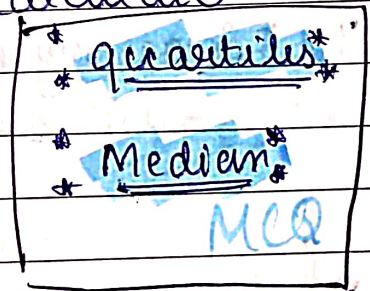 * quartiles *
* *
* Median *
* *
MCQ